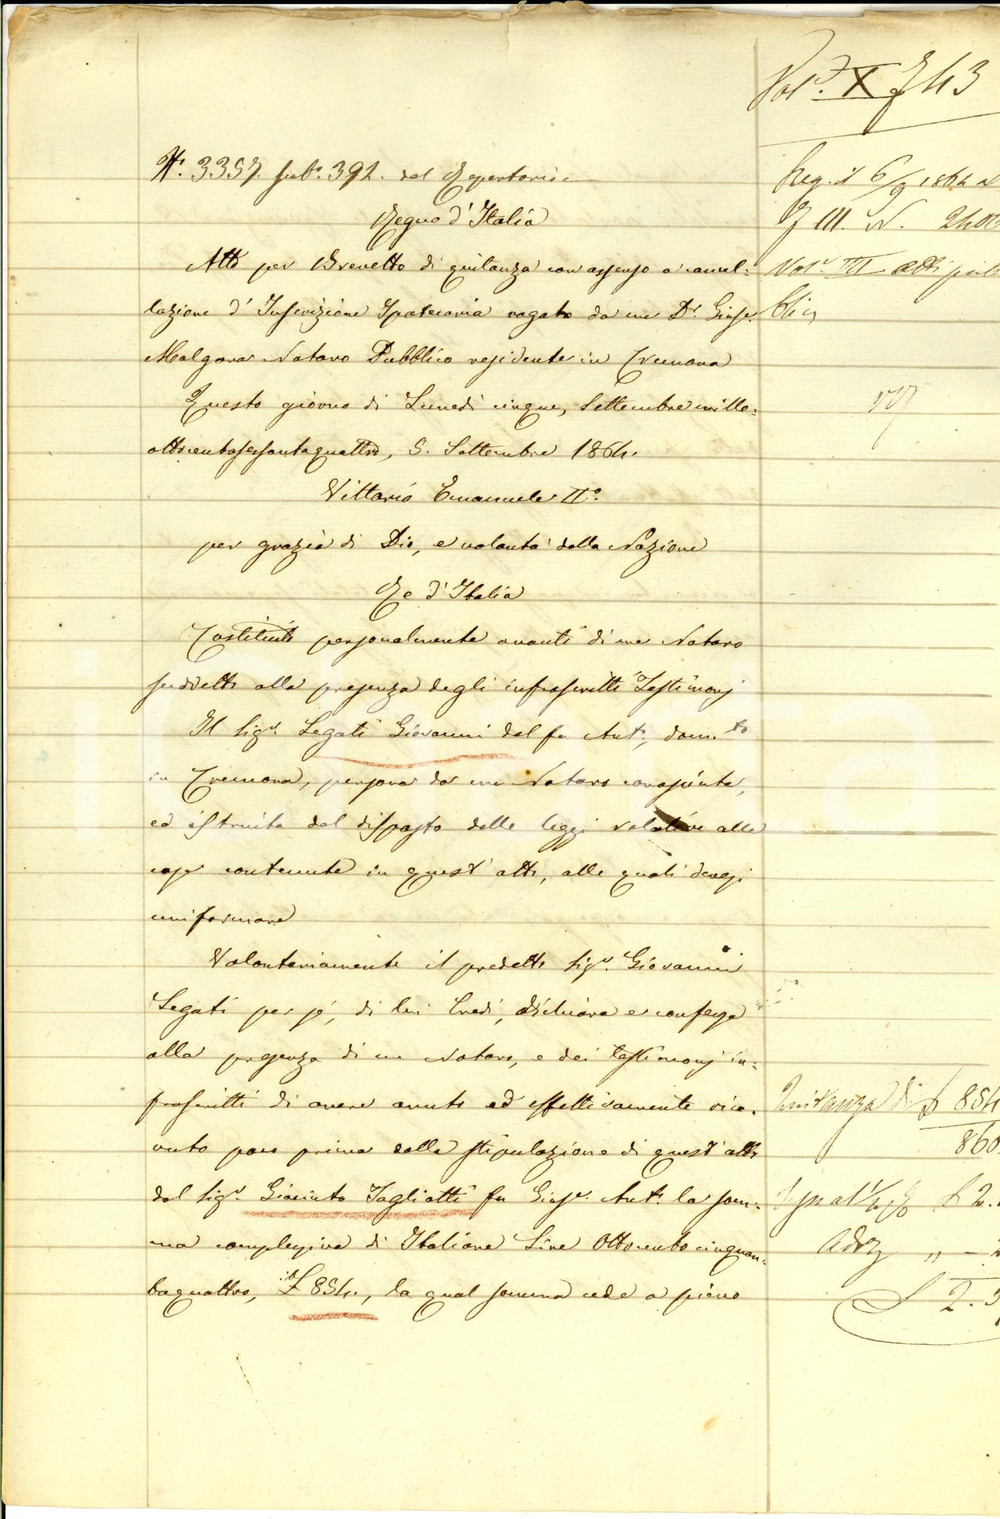 Vol.e X
N.° 3357. sub.° 392. del Repertorio
Regno d'Italia
Atto per Brevetto di quitanza con assenso a cancel-
lazione d'Inscrizione Ipotecaria rogato da me D.r Gius.e
Malgara Notaro Pubblico residente in Cremona
Questo giorno di Lunedì cinque, Settembre mille-
ottocentosessantaquattro, 5. Settembre 1864.
Vittorio Emanuele II.°
per grazia di Dio, e volontà della Nazione
Re d'Italia
Costituito personalmente avanti di me Notaro
suddetto alla presenza degli infrascritti Testimonj
Il Sig.r Legati Giovanni del fu Ant.°, dom.to
in Cremona, persona da me Notaro conosciuta,
ed istruita del disposto delle leggi relative alle
cose contenute in quest'atto, alle quali devesi
uniformare
Volontariamente il predetto Sig.r Giovanni
Legati per sé, di lui Eredi, dichiara e confessa
alla presenza di me Notaro, e dei testimonj in-
frascritti di avere avuto ed effettivamente rice-
vuto poco prima della stipulazione di quest'atto
dal Sig.r Giacinto Tagliatti fu Gius.e Ant.° la som-
ma complessiva di Italiane Lire Ottocentocinquan-
taquattro, it. £ 854., la qual somma cede a pieno
Reg. il 6/9 1864
III. N.
Vol.e III Atti pub
blici
Quitanza di £ 854
860
£ 2.
Add.
£ 2.